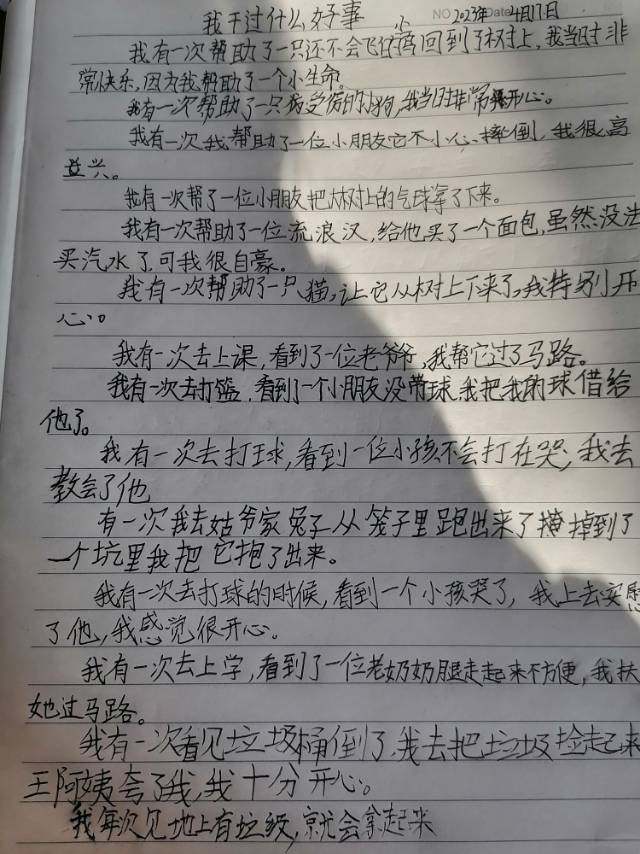 我干过什么好事
NO.
Date
2023年4月17日
我有一次帮助了一只还不会飞的小鸟回到了树上,我当时非
常快乐,因为我帮助了一个小生命。
我有一次帮助了一只受伤的小狗,我当时非常开心。
我有一次我帮助了一位小朋友它不小心摔倒,我很高
兴。
我有一次帮了一位小朋友把大树上的气球拿了下来。
我有一次帮助了一位流浪汉,给他买了一个面包,虽然没法
买汽水了,可我很自豪。
我有一次帮助了一只猫,让它从树上下来了,我特别开
心。
我有一次去上课,看到了一位老爷爷,我帮它过了马路。
我有一次去打篮,看到了一个小朋友没带球,我把我的球借给
他了。
我有一次去打球,看到一位小孩不会打在哭,我去
教会了他
有一次我去姑爷家兔子从笼子里跑出来了掉到了
一个坑里我把它抱了出来。
我有一次去打球的时候,看到一个小孩哭了,我上去安慰
了他,我感觉很开心。
我有一次去上学,看到了一位老奶奶腿走起来不方便,我扶
她过马路。
我有一次看见垃圾桶倒了,我去把垃圾捡起来
王阿姨夸了我,我十分开心。
我每次见地上有垃圾,就会拿起来